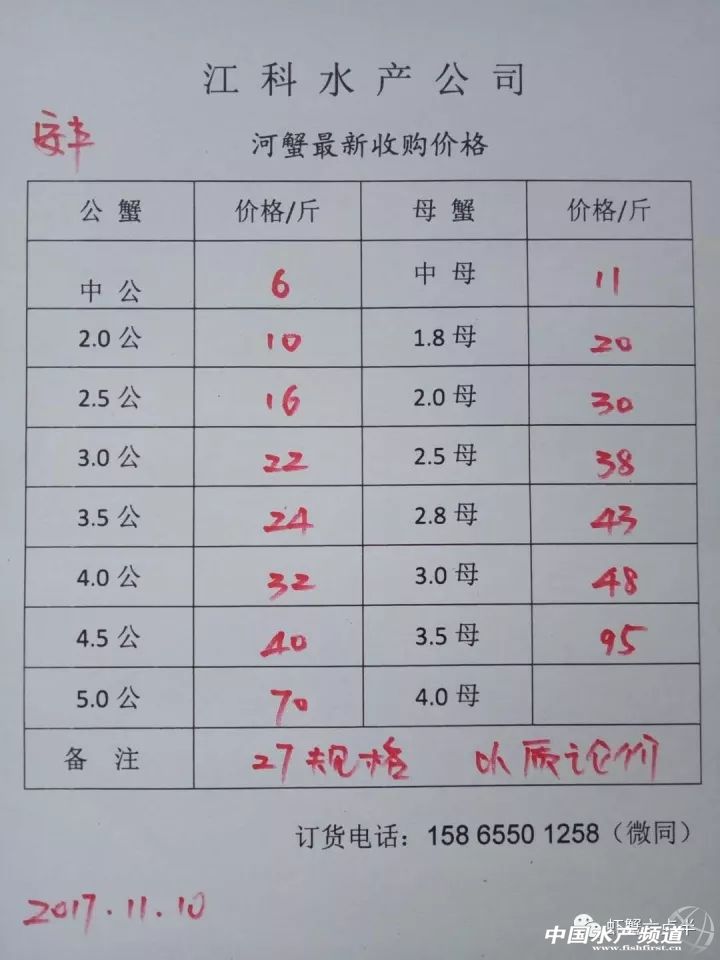 江科水产公司
安丰
河蟹最新收购价格
公蟹 价格/斤 母蟹 价格/斤
中公 6 中母 11
2.0公 10 1.8母 20
2.5公 16 2.0母 30
3.0公 22 2.5母 38
3.5公 24 2.8母 43
4.0公 32 3.0母 48
4.5公 40 3.5母 95
5.0公 70 4.0母
备注 27规格 以质论价
订货电话：158 6550 1258（微同）
2017.11.10
虾蟹六点半
中国水产频道
www.fishfirst.cn